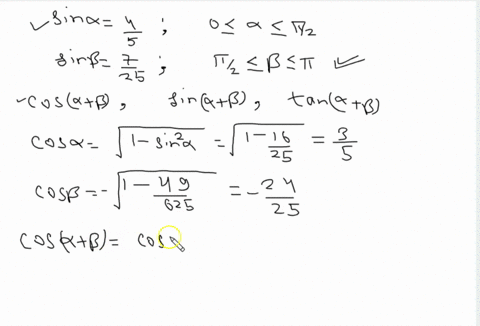 ✓sinα = 4/5 ; 0 ≤ α ≤ π/2
sinβ = 7/25 ; π/2 ≤ β ≤ π ✓
✓cos(α+β) , sin(α+β) , tan(α+β)
cosα = √(1 - sin²α) = √(1 - 16/25) = 3/5
cosβ = -√(1 - 49/625) = -24/25
cos(α+β) = cos